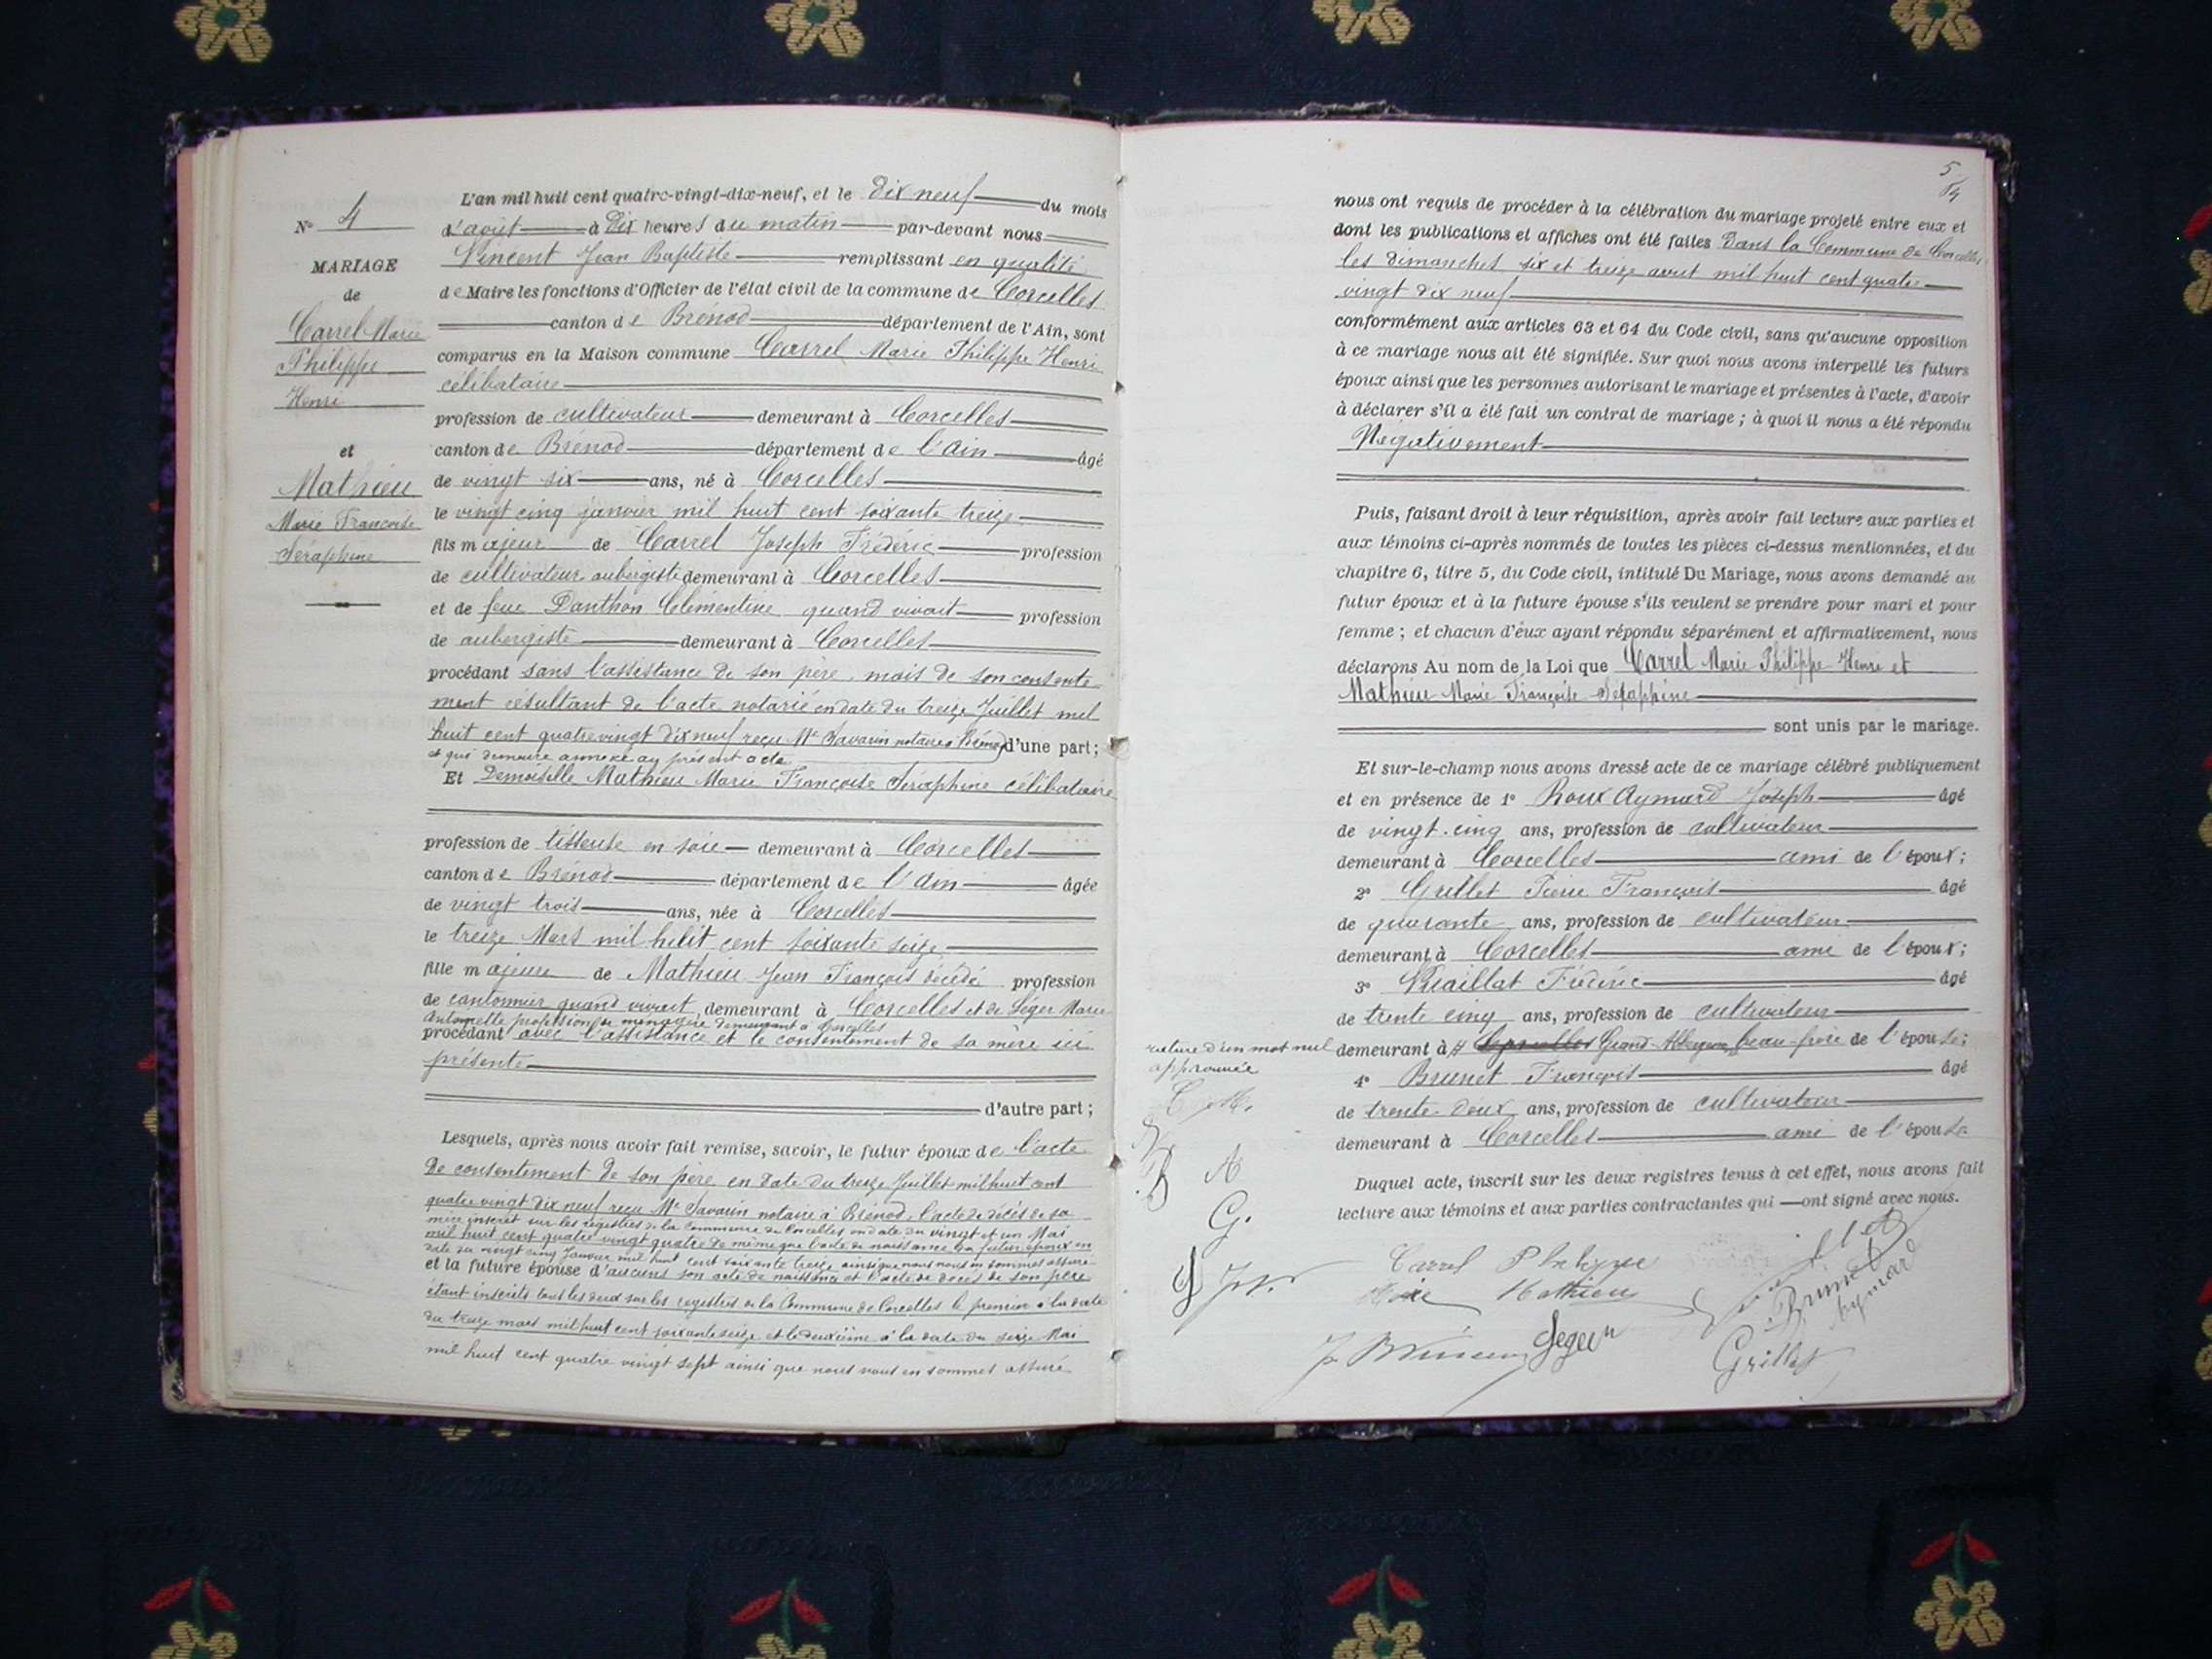 N° 4
MARIAGE
de
Carrel Marie
Philippe
Henri
et
Mathieu
Marie Françoise
Séraphine
L'an mil huit cent quatre-vingt-dix-neuf, et le dix neuf du mois
d'août à Dix heures du matin par-devant nous
Vincent Jean Baptiste remplissant en qualité
de Maire les fonctions d'Officier de l'état civil de la commune de Corcelles
canton de Brénod département de l'Ain, sont
comparus en la Maison commune Carrel Marie Philippe Henri
célibataire
profession de cultivateur demeurant à Corcelles
canton de Brénod département de l'Ain âgé
de vingt six ans, né à Corcelles
le vingt cinq janvier mil huit cent soixante treize
fils majeur de Carrel Joseph Fréderic profession
de cultivateur aubergiste demeurant à Corcelles
et de feue Danthon Clémentine quand vivait profession
de aubergiste demeurant à Corcelles
procédant sans l'assistance de son père, mais de son consente
ment résultant de l'acte notarié en date du treize Juillet mil
huit cent quatre vingt dix neuf reçu Me Savarin notaire à Brénod d'une part;
et qui demeure annexé au présent acte
Et Demoiselle Mathieu Marie Françoise Séraphine célibataire
profession de tisseuse en soie demeurant à Corcelles
canton de Brénod département de l'Ain âgée
de vingt trois ans, née à Corcelles
le treize Mars mil huit cent soixante seize
fille majeure de Mathieu Jean François décédé profession
de cantonnier quand vivait, demeurant à Corcelles et de Léger Marie
Antoinette profession de menagère demeurant à Corcelles
procédant avec l'assistance et le consentement de sa mère ici
présente
d'autre part;
Lesquels, après nous avoir fait remise, savoir, le futur époux de l'acte
de consentement de son père en date du treize Juillet mil huit cent
quatre vingt dix neuf reçu Me Savarin notaire à Brénod, l'acte de décès de sa
mère inscrit sur les registres de la commune de Corcelles en date du vingt et un Mai
mil huit cent quatre vingt quatre de même que l'acte de naissance du futur époux en
date du vingt cinq Janvier mil huit cent soixante treize ainsi que nous nous en sommes assuré
et la future épouse d'aucuns son acte de naissance et l'acte de décès de son père
étant inscrits tous les deux sur les registres de la Commune de Corcelles le premier à la date
du treize mars mil huit cent soixante seize et le deuxième à la date du seize Mai
mil huit cent quatre vingt sept ainsi que nous nous en sommes assuré
5
nous ont requis de procéder à la célébration du mariage projeté entre eux et
dont les publications et affiches ont été faites Dans la Commune de Corcelles
les dimanches six et treize aout mil huit cent quatre
vingt dix neuf
conformément aux articles 63 et 64 du Code civil, sans qu'aucune opposition
à ce mariage nous ait été signifiée. Sur quoi nous avons interpellé les futurs
époux ainsi que les personnes autorisant le mariage et présentes à l'acte, d'avoir
à déclarer s'il a été fait un contrat de mariage; à quoi il nous a été répondu
Négativement
Puis, faisant droit à leur réquisition, après avoir fait lecture aux parties et
aux témoins ci-après nommés de toutes les pièces ci-dessus mentionnées, et du
chapitre 6, titre 5, du Code civil, intitulé Du Mariage, nous avons demandé au
futur époux et à la future épouse s'ils veulent se prendre pour mari et pour
femme; et chacun d'eux ayant répondu séparément et affirmativement, nous
déclarons Au nom de la Loi que Carrel Marie Philippe Henri et
Mathieu Marie Françoise Séraphine
sont unis par le mariage.
Et sur-le-champ nous avons dressé acte de ce mariage célébré publiquement
et en présence de 1° Roux Aymard Joseph âgé
de vingt-cinq ans, profession de cultivateur
demeurant à Corcelles ami de l'époux;
2° Grillet Pierre François âgé
de quarante ans, profession de cultivateur
demeurant à Corcelles ami de l'époux;
3° Frédéric âgé
de trente cinq ans, profession de cultivateur
demeurant à Grand Abergement beau-frère de l'épouse;
4° Brunet François âgé
de trente-deux ans, profession de cultivateur
demeurant à Corcelles ami de l'épouse
rature d'un mot nul
approuvée
C M.
B A
G.
Duquel acte, inscrit sur les deux registres tenus à cet effet, nous avons fait
lecture aux témoins et aux parties contractantes qui ont signé avec nous.
Carrel Philippe
Marie Mathieu
Brunet
Aymard
Leger
Grillet